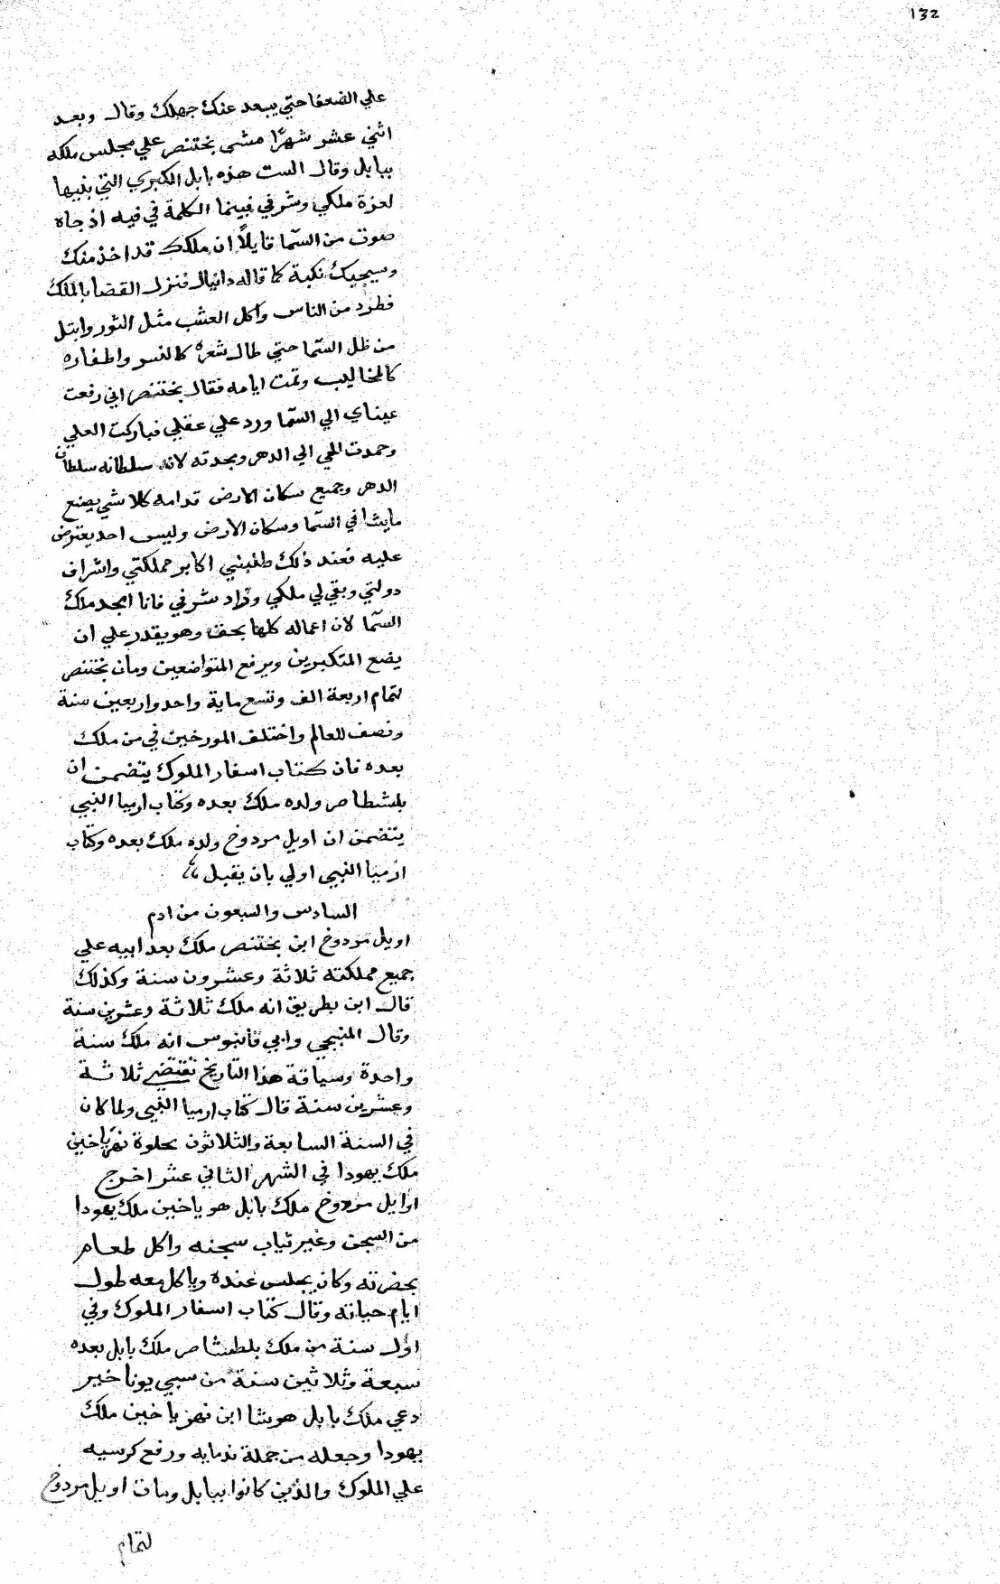 132
علي الضعفا حتي يبعد عنك جهلك وقال وبعد
اثني عشر شهرًا مشي بختنصر علي مجلس ملكه
ببابل وقال الست هذه بابل الكبري التي بنيتها
لعزة ملكي وشرفي فبينما الكلمة في فيه اذ جاه
صوت من السّما قايلاً ان ملكك قد اخذ منك
وسيجيك نكبة كما قاله دانيال فنزل القضا بالملك
فطرد من الناس واكل العشب مثل الثور وابتل
من ظل السّما حتي طال شعره كالنسر واظفاره
كالمخاليب وتمت ايامه فقال بختنصر اني رفعت
عيناي الي السّما ورد علي عقلي فباركت العلي
وحمدت للحي الي الدهر ومجدته لانه سلطانه سلطان
الدهر وجميع سكان الارض قدامه كلا شي يصنع
مايشا في السّما وسكان الارض وليس احد يعترض
عليه فعند ذلك طلبني اكابر مملكتي واشراف
دولتي وبقي لي ملكي وزاد شرفي فانا امجد ملك
السّما لان اعماله كلها بحق وهو يقدر علي ان
يضع المتكبرين ويرفع المتواضعين ومات بختنصر
لتمام اربعة الف وتسع ماية واحد واربعين سنة
ونصف للعالم واختلف المورخين في من ملك
بعده فان كتاب اسفار الملوك يتضمن ان
بلشطاصر ولده ملك بعده وكتاب ارميا النبي
يتضمن ان اويل مردوخ ولده ملك بعده وكتاب
ارميا النبي اولي بان يقبل
السادس والسبعون من ادم
اويل مردوخ ابن بختنصر ملك بعد ابيه علي
جميع مملكته ثلاثة وعشرون سنة وكذلك
قال ابن بطريق انه ملك ثلاثة وعشرين سنة
وقال المنبجي وابي فانيوس انه ملك سنة
واحدة وسياقة هذا التاريخ تقتضي ثلاثة
وعشرين سنة قال كتاب ارميا النبي ولما كان
في السنة السابعة والثلاثون بحلوة ياخين
ملك يهودا في الشهر الثاني عشر اخرج
اوايل مردوخ ملك بابل هو ياخين ملك يهودا
من السجن وغير ثياب سجنه واكل طعام
بحضرته وكان يجلس عنده وياكل معه طول
ايام حياته وقال كتاب اسفار الملوك وفي
اوّل سنة من ملك بلطشاصر ملك بابل بعده
سبعة وثلاثين سنة من سبي يوناخير
دعي ملك بابل هوشا ابن ياخين ملك
يهودا وجعله من جملة ندمايه ورفع كرسيه
علي الملوك والذين كانوا ببابل ومات اويل مردوخ
لتمام